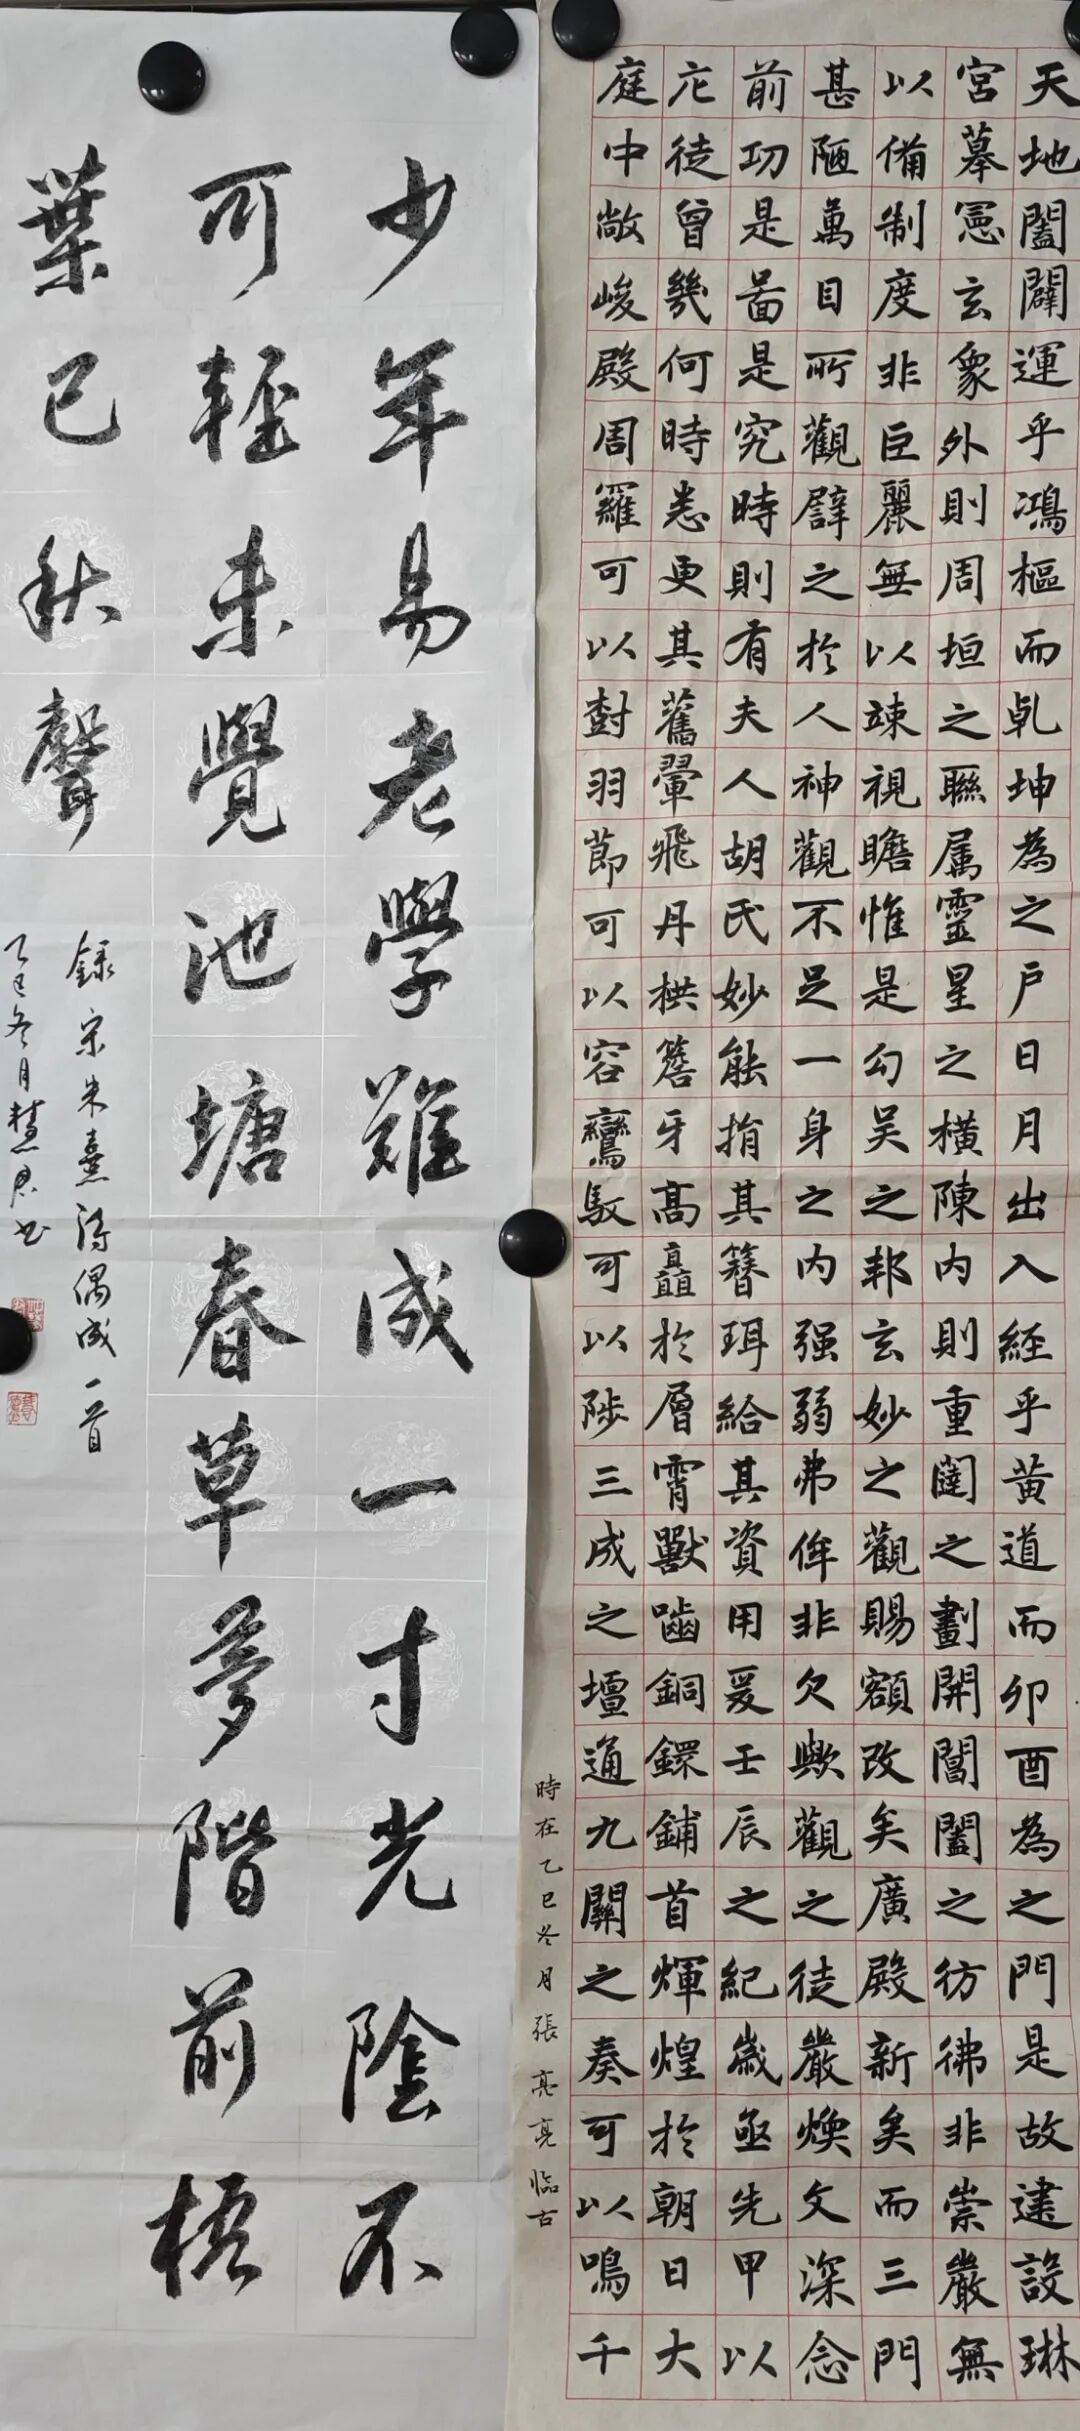 天地闔闢運乎鴻樞而乹坤為之户日月出入經乎黄道而卯酉為之門是故建設琳
宮摹憲玄象外則周垣之聯属靈星之橫陳内則重闥之劃開閶闔之彷彿非崇嚴無
以備制度非巨麗無以竦視瞻惟是勾吴之邦玄妙之觀賜額改矣廣殿新矣而三門
甚陋萬目所觀譬之於人神觀不足一身之内强弱弗侔非欠歟觀之徒嚴煥文深念
前功是啚是究時則有夫人胡氏妙能捐其簪珥給其資用爰壬辰之紀歲亟先甲以
庀徒曾幾何時悉更其舊翬飛丹栱簷牙高矗於層霄獸嚙銅鐶鋪首煇煌於朝日大
庭中敞峻殿周羅可以樹羽節可以容鸞馭可以陟三成之壇通九關之奏可以鳴千
時在乙巳冬月張亮亮臨古
少年易老學難成一寸光陰不
可輕未覺池塘春草夢階前梧
葉已秋聲
録宋朱熹詩偶成一首
乙巳冬月慧君书